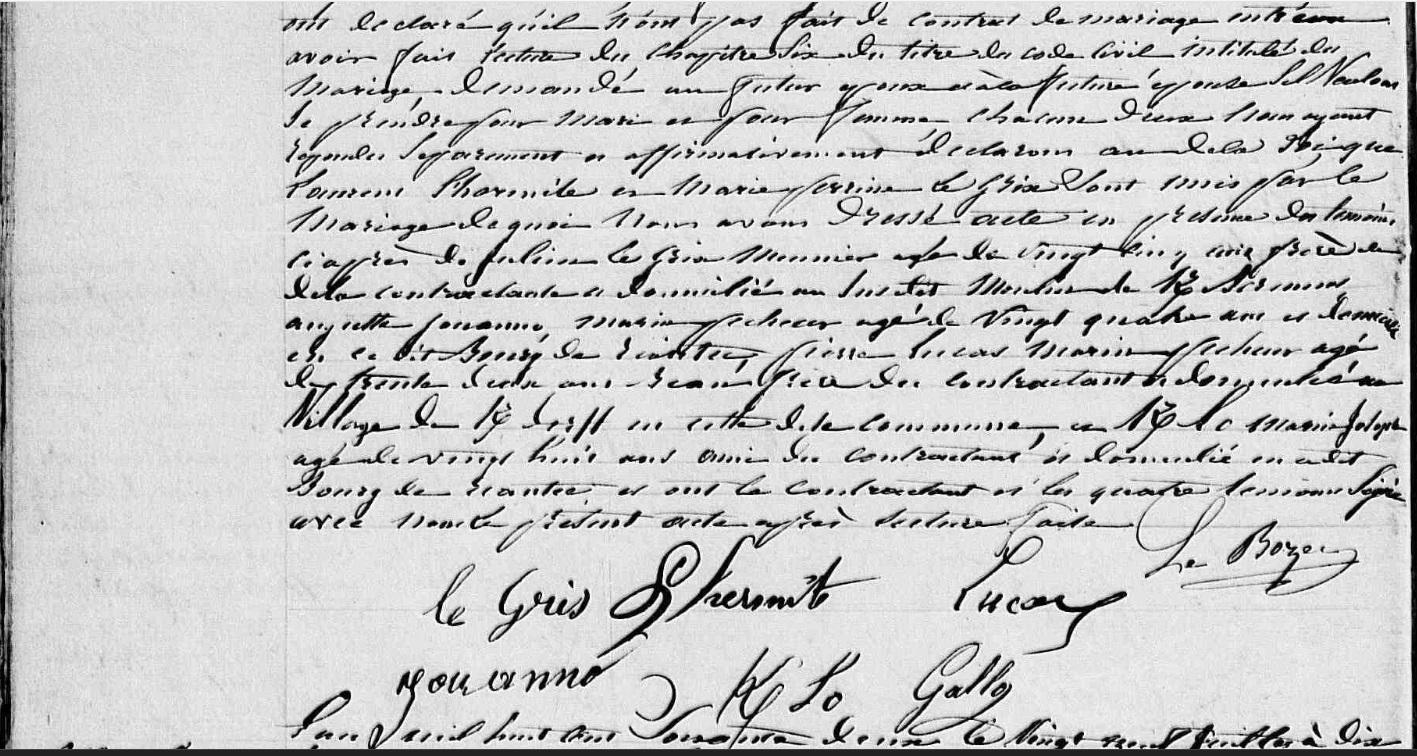 ont declaré qu'il n'ont pas fait de contrat de mariage entr'eux
avoir fait lecture du chapitre six du titre du code Civil intitulé du
Mariage demandé au futur epoux et à la future épouse s'il Veulent
Se prendre pour Mari et pour femme chacun d'eux Nous ayant
repondu Séparement et affirmativement déclarons au de la loi que
Laurent Lhermite et Marie perrine Le Gris Sont unis par le
Mariage de quoi Nous avons Dressé acte en présence des témoins
ciaprès de julien Le Gris Meunier agé de vingt cinq ans frère
de la contractante et domicilié au Moulin de
jouanno, marin pecheur agé de Vingt quatre ans et domicilié
en ce dit Bourg de Riantec, pierre Lucas Marin pecheur agé
de trente deux ans beau frère du contractant et domicilié au
Village de K en cette dite commune, et K lo marin Joseph
agé de vingt huit ans ami du contractant et domicilié en cedit
Bourg de Riantec, et ont le contractant et les quatre temoins Signé
avec nous le présent acte après lecture faite
Le Bozec
le Gris Lhermite Lucas
jouanno K lo Gallo
L'an mil huit cent Soixante deux le Vingt juillet à dix